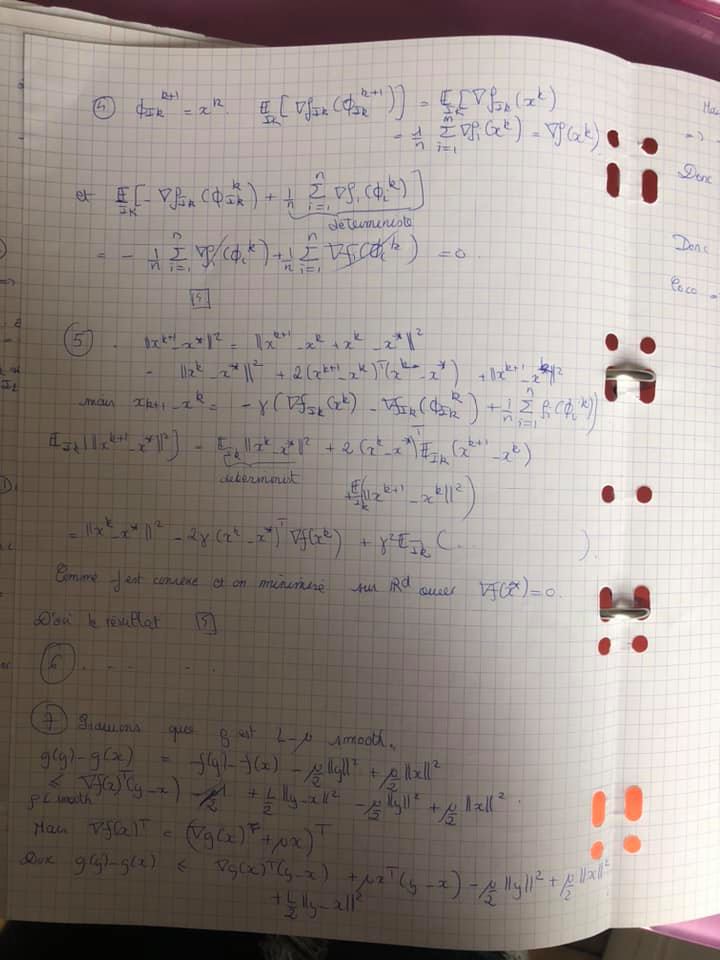 ④ φ_{I_k}^{k+1} = x^k. E_{I_k}[∇f_{I_k}(φ_{I_k}^{k+1})] = E_{I_k}[∇f_{I_k}(x^k)
= 1/n Σ_{i=1}^n ∇f_i(x^k) = ∇f(x^k)
et E_{I_k}[-∇f_{I_k}(φ_{I_k}^k) + 1/n Σ_{i=1}^n ∇f_i(φ_i^k)]
déterministe
= - 1/n Σ_{i=1}^n ∇f_i(φ_i^k) + 1/n Σ_{i=1}^n ∇f_i(φ_i^k) = 0.
⑤ . ||x^{k+1} - x^*||² = ||x^{k+1} - x^k + x^k - x^*||²
= ||x^k - x^*||² + 2(x^{k+1} - x^k)^T(x^k - x^*) + ||x^{k+1} - x^k||²
mais x_{k+1} - x^k = -γ(∇f_{I_k}(x^k) - ∇f_{I_k}(φ_{I_k}^k) + 1/n Σ_{i=1}^n f_i(φ_i^k))
E_{I_k}[||x^{k+1} - x^*||²] = E_{I_k}||x^k - x^*||² + 2(x^k - x^*)^T E_{I_k}(x^{k+1} - x^k)
+ E_{I_k}(||x^{k+1} - x^k||²)
= ||x^k - x^*||² - 2γ(x^k - x^*)^T ∇f(x^k) + γ² E_{I_k}(... ).
Comme f est convexe et on minimise sur R^d ouvert ∇f(x^*) = 0.
D'où le résultat
⑥ . - -- - .
⑦ Prouvons que g est L-μ smooth.
g(y) - g(x) = f(y) - f(x) - μ/2 ||y||² + μ/2 ||x||²
≤ ∇f(x)^T(y - x) + L/2 ||y - x||² - μ/2 ||y||² + μ/2 ||x||².
f L smooth
Mais ∇f(x)^T = (∇g(x) + μx)^T
Donc g(y) - g(x) ≤ ∇g(x)^T(y - x) + μx^T(y - x) - μ/2 ||y||² + μ/2 ||x||²
+ L/2 ||y - x||²
Donc
Donc